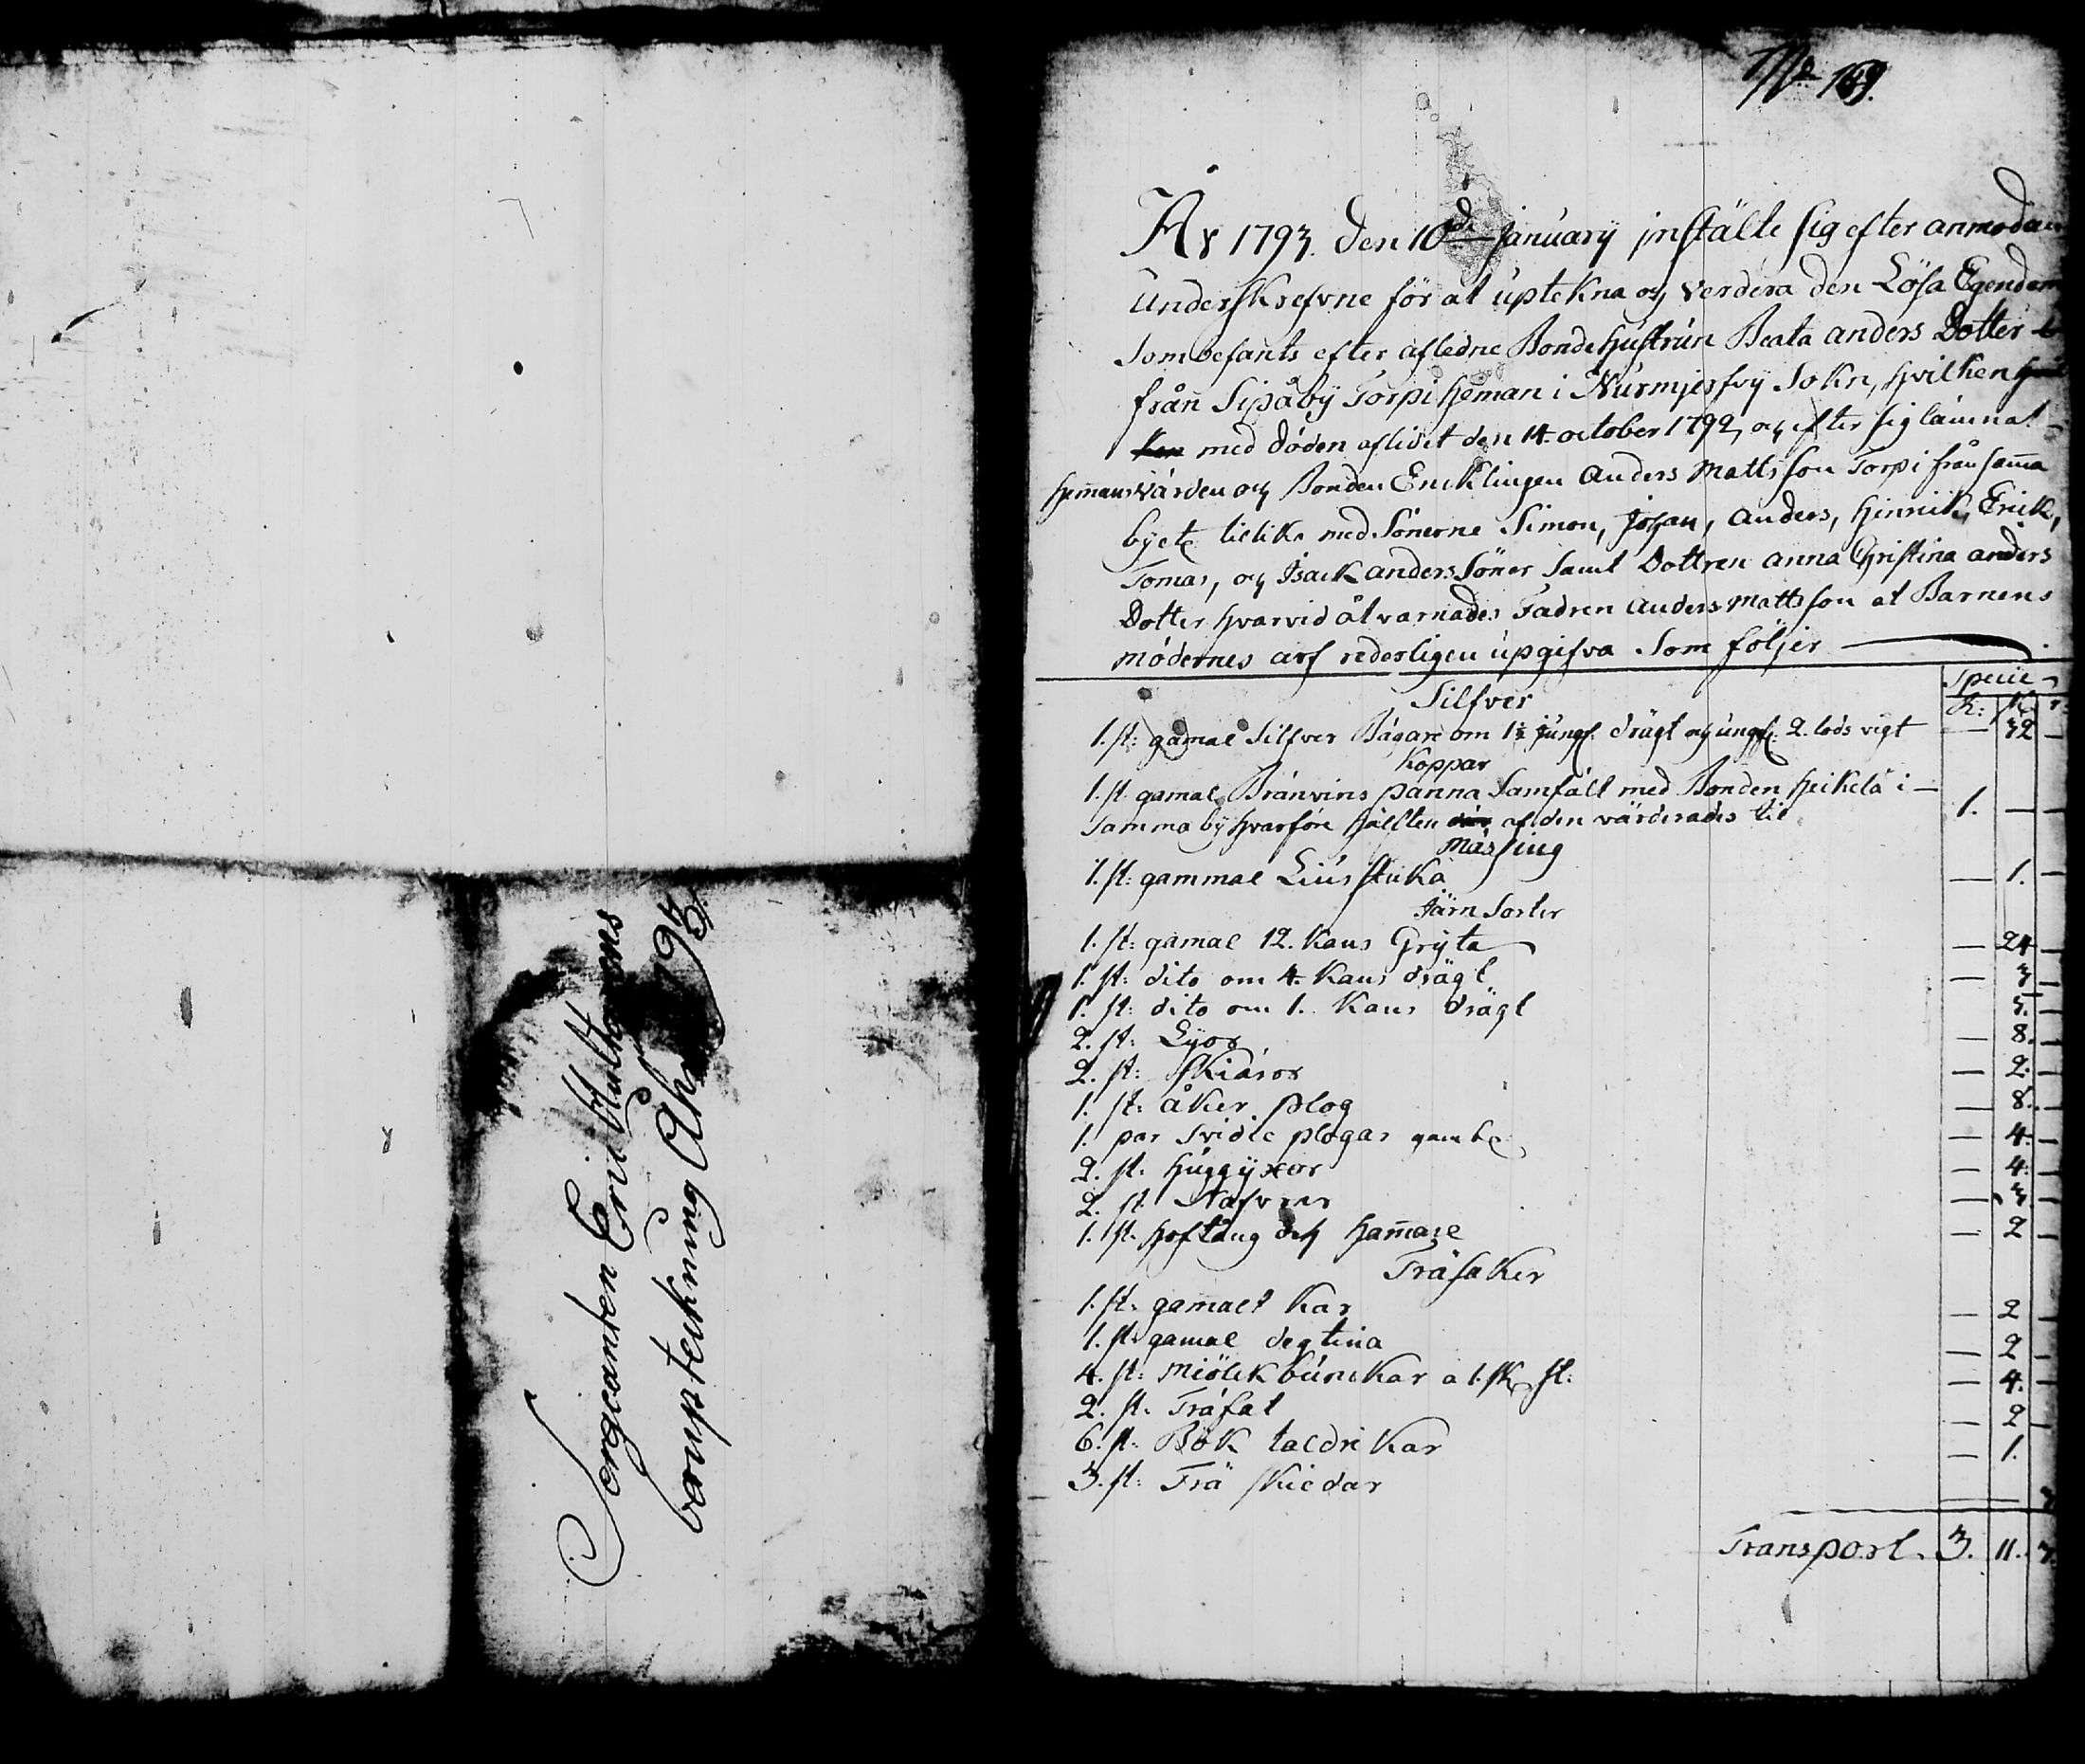 Sergeanten Eric Hulthorens
boupteckning Åhr 1793.
No 169.
År 1793. den 10de january instälte sig efter anmodan
Underskrefvne för at uptekna och verdera den Lösa Egendom
som befants efter afledne Bondehustrun Beata anders Dotter
från Sipåby Torpi heman i Nurmjerfvy Sokn, hvilken
med döden aflidit den 14. october 1792, och efter sig lämnat
hemansvärden och Bonden Encklingen Anders Mattsson Torpi från sama
byete tillika med Sönerne Simon, Johan, Anders, Hinrik, Erick,
Tomas, och Isack anders Söner samt Dottren anna Christina anders
Dotter hvarvid åtvarnades Fadren Anders Mattsson at Barnens
mödernes arf rederligen upgifva Som följer
Specie
R: sk r:
Silfver
1. st: gamal Silfver Bägare om 1½ jungf. drägt och ungf. 2. lods vigt — 32 —
Koppar
1. st. gamal Bränvins panna Samfält med Bonden Heikelä i —
Samma by hvarföre hälften af den värderades til 1. — —
Mässing
1. st: gammal Liusstaka — 1. —
Järn Sorter
1. st: gamal 12. kans Gryta — 24 —
1. st: dito om 4. kans drägt — 3 —
1. st: dito om 1. kans drägt 5. —
2. st: Lyor — 8. —
2. st: Skiäror — 2. —
1. st: åker plog — 8. —
1. par Svidie plogar gamle — 4. —
2. st. huggyxor — 4. —
2. st Nafvrar — 3 —
1. st. hoftång och hamare — 2 —
Träsaker
1. st: gamalt kar — 2 —
1. st: gamal degtina — 2 —
4. st: miölck bunckar a 1. sk st: — 4. —
2. st. Träfat — 2 —
6. st: Bök taldrickar — 1.
3. st: Trä skiedar — — 3
Transport. 3. 11. 3.